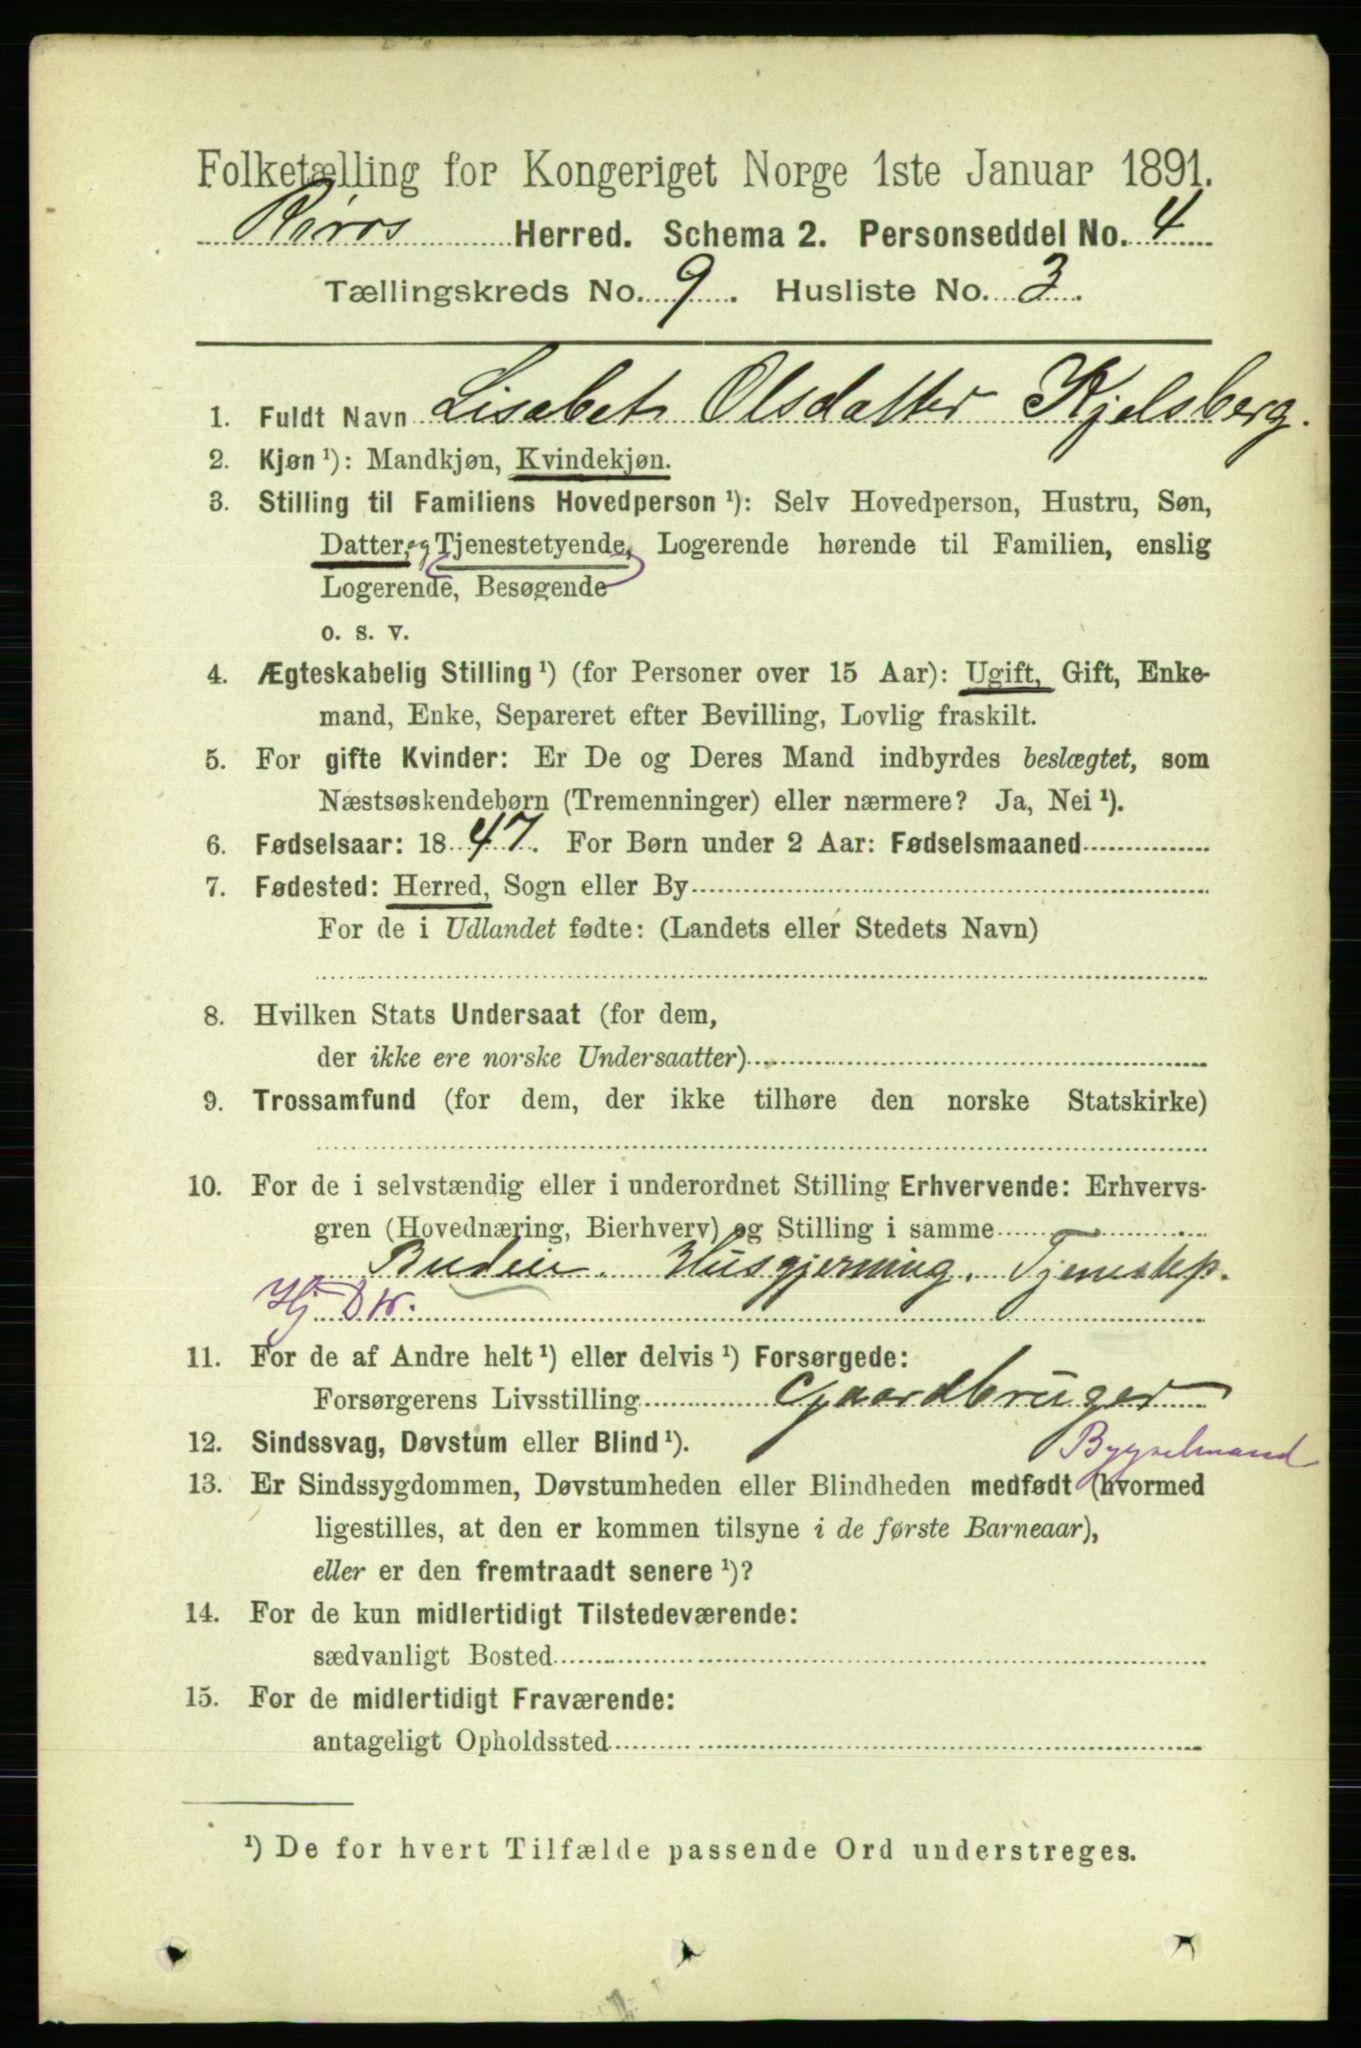 Folketælling for Kongeriget Norge 1ste Januar 1891.
Røros Herred. Schema 2. Personseddel No. 4
Tællingskreds No. 9. Husliste No. 3.
1. Fuldt Navn Lisabet Olsdatter Kjelsberg.
2. Kjøn ¹): Mandkjøn, Kvindekjøn.
3. Stilling til Familiens Hovedperson ¹): Selv Hovedperson, Hustru, Søn,
Datter, og Tjenestetyende, Logerende hørende til Familien, enslig
Logerende, Besøgende
o. s. v.
4. Ægteskabelig Stilling ¹) (for Personer over 15 Aar): Ugift, Gift, Enke-
mand, Enke, Separeret efter Bevilling, Lovlig fraskilt.
5. For gifte Kvinder: Er De og Deres Mand indbyrdes beslægtet, som
Næstsøskendebørn (Tremenninger) eller nærmere? Ja, Nei ¹).
6. Fødselsaar: 1847. For Børn under 2 Aar: Fødselsmaaned
7. Fødested: Herred, Sogn eller By
For de i Udlandet fødte: (Landets eller Stedets Navn)
8. Hvilken Stats Undersaat (for dem,
der ikke ere norske Undersaatter)
9. Trossamfund (for dem, der ikke tilhøre den norske Statskirke)
10. For de i selvstændig eller i underordnet Stilling Erhvervende: Erhvervs-
gren (Hovednæring, Bierhverv) og Stilling i samme
Budeie. Husgjerning. Tjenestep.
Hj
11. For de af Andre helt ¹) eller delvis ¹) Forsørgede:
Forsørgerens Livsstilling Gaardbruger
12. Sindssvag, Døvstum eller Blind ¹). Bygselmand
13. Er Sindssygdommen, Døvstumheden eller Blindheden medfødt (hvormed
ligestilles, at den er kommen tilsyne i de første Barneaar),
eller er den fremtraadt senere ¹)?
14. For de kun midlertidigt Tilstedeværende:
sædvanligt Bosted
15. For de midlertidigt Fraværende:
antageligt Opholdssted
¹) De for hvert Tilfælde passende Ord understreges.